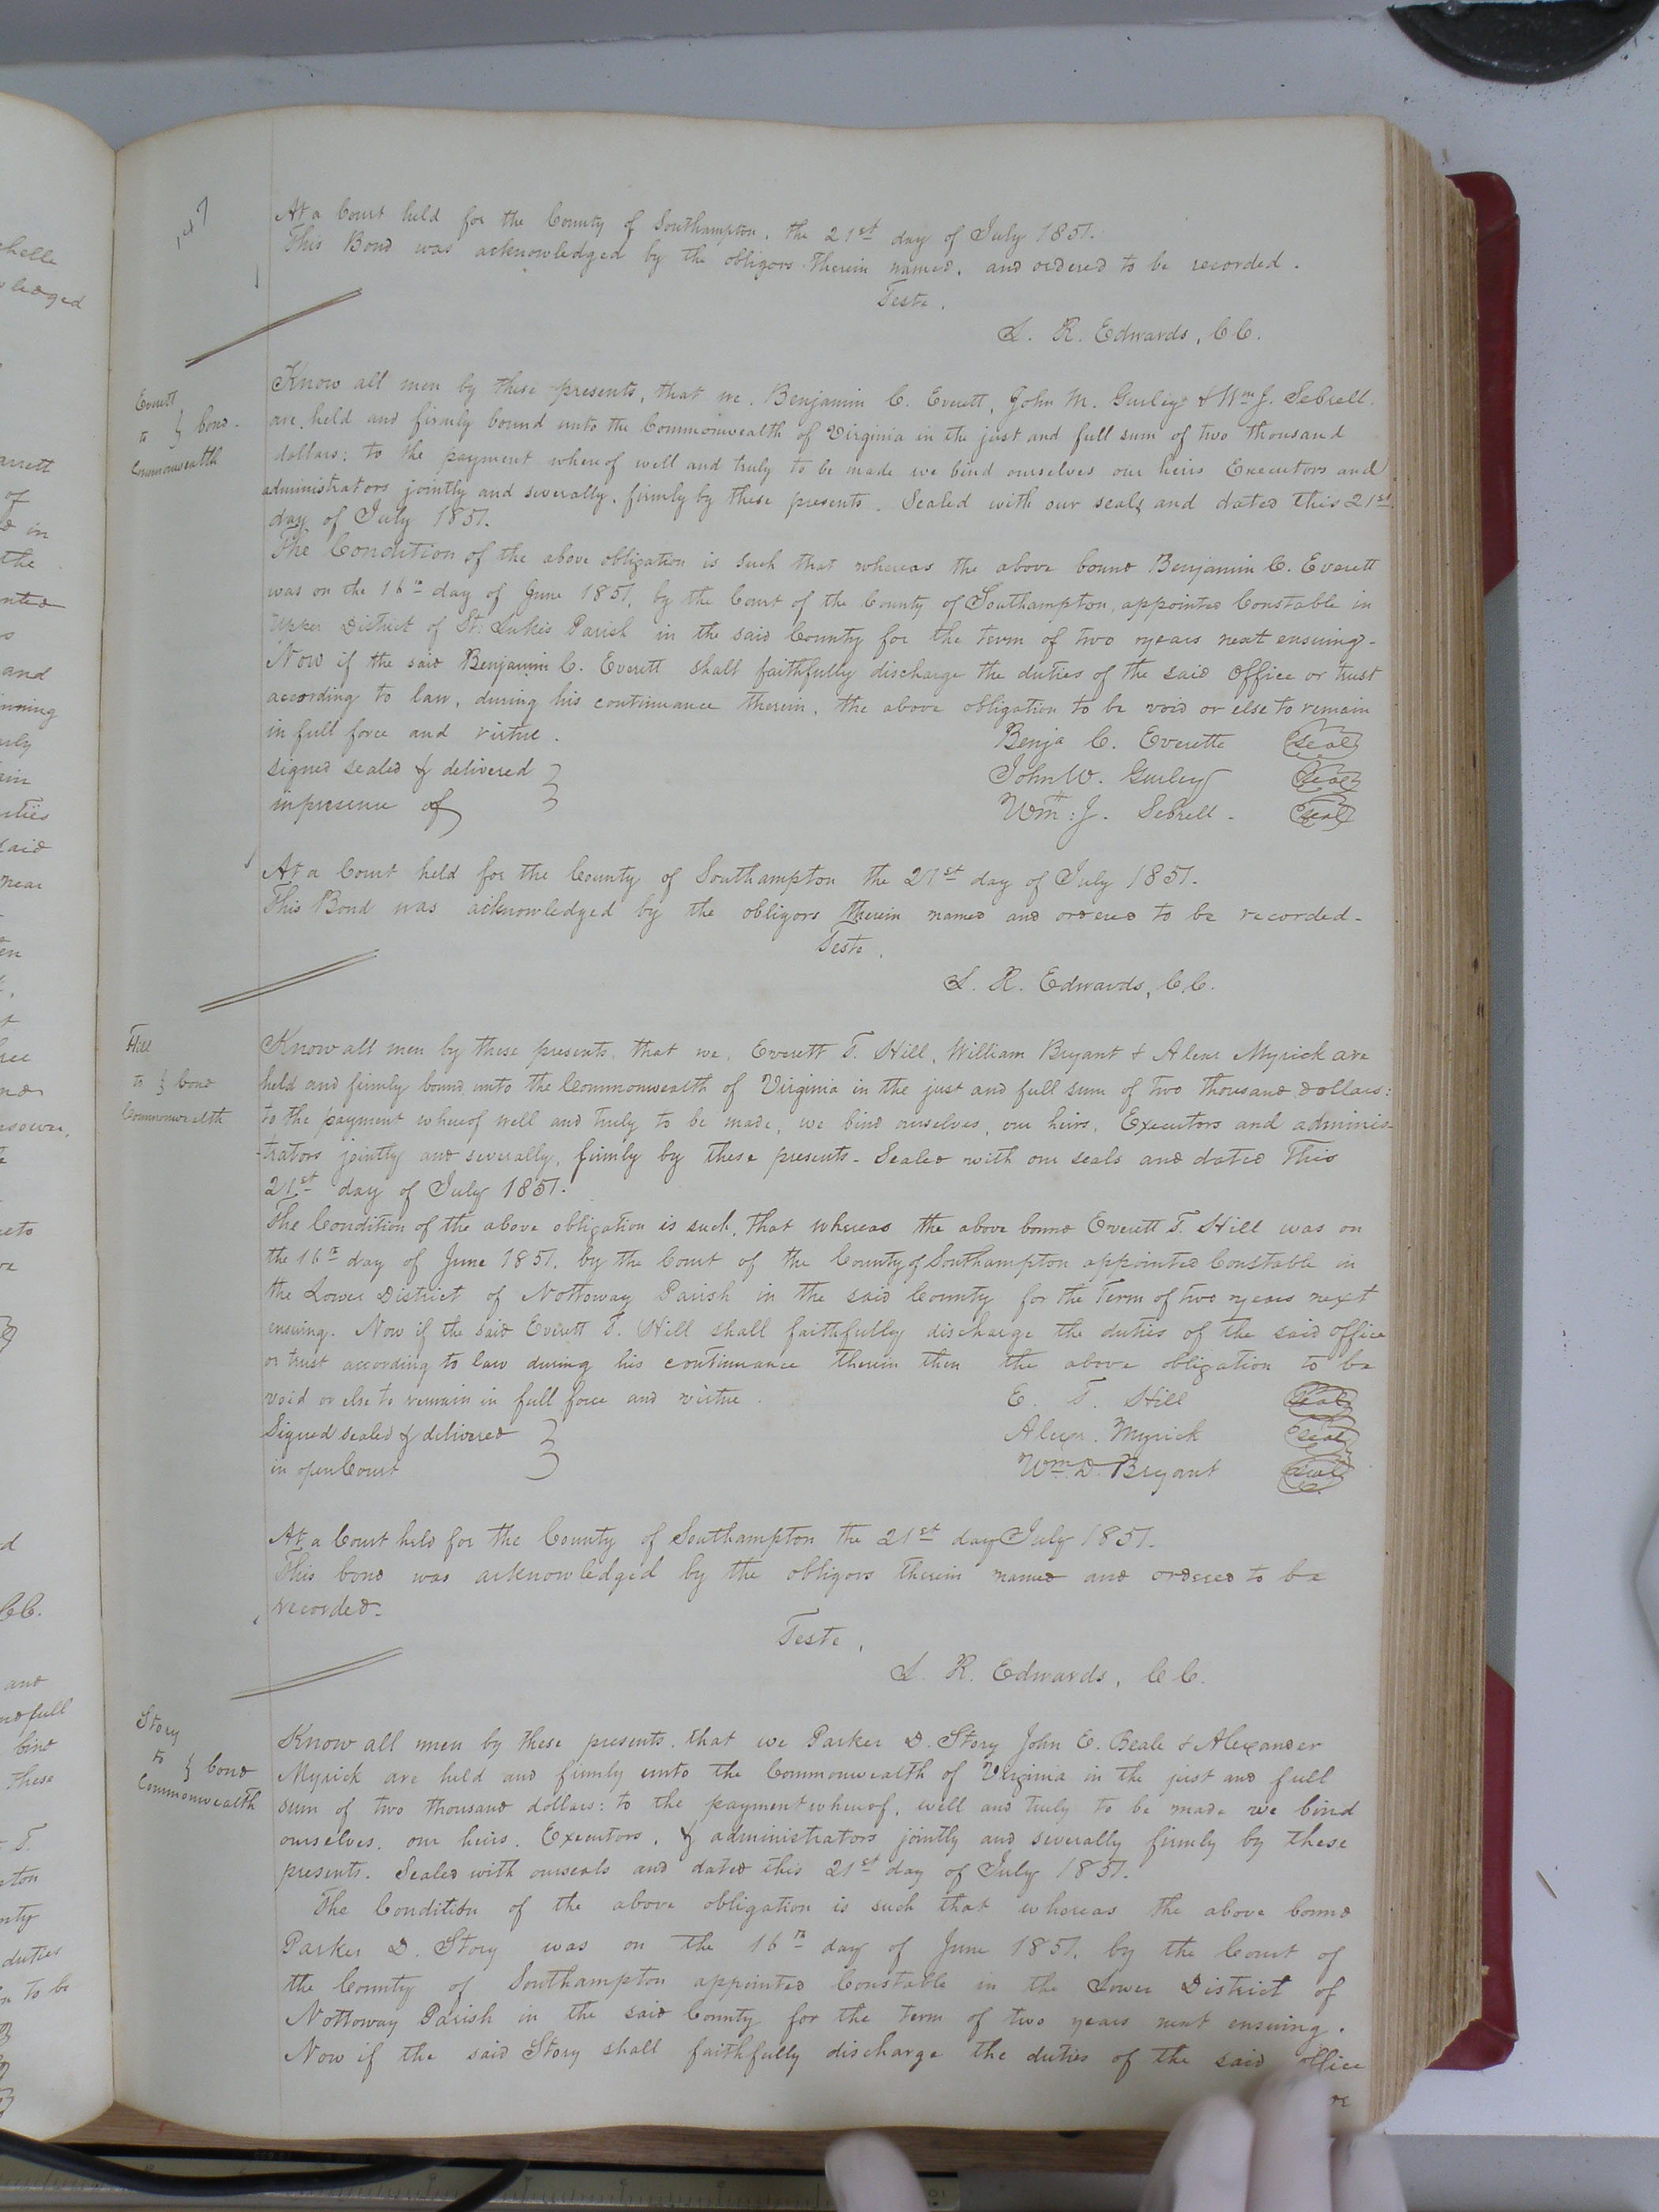 147
At a Court held for the County of Southampton, the 21st day of July 1851.
This Bond was acknowledged by the obligors therein named, and ordered to be recorded.
Teste.
L. R. Edwards, CC.
Everett
to } bond.
Commonwealth
Know all men by these presents, that we, Benjamin C. Everett, John M. Gurley & Wm J. Sebrell.
are held and firmly bound unto the Commonwealth of Virginia in the just and full sum of two thousand
dollars; to the payment whereof well and truly to be made we bind ourselves our heirs Executors and
administrators jointly and severally, firmly by these presents. Sealed with our seals and dated this 21st
day of July 1851.
The Condition of the above obligation is such that whereas the above bound Benjamin C. Everett
was on the 16th day of June 1851, by the Court of the County of Southampton, appointed Constable in
Upper District of St: Lukes Parish in the said County for the term of two years next ensuing-
Now if the said Benjamin C. Everett shall faithfully discharge the duties of the said office or trust
according to law, during his continuance therein, the above obligation to be void or else to remain
in full force and virtue. Benja C. Everette seal
signed sealed & delivered } John W. Gurley seal
in presence of } Wm: J. Sebrell - seal
At a Court held for the County of Southampton the 21st day of July 1851.
This Bond was acknowledged by the obligors therein named and ordered to be recorded-
Teste.
L. R. Edwards, CC.
Hill
to } bond
Commonwealth
Know all men by these presents, that we, Everett T. Hill, William Bryant & Alexr Myrick are
held and firmly bound unto the Commonwealth of Virginia in the just and full sum of two thousand dollars:
to the payment whereof well and truly to be made, we bind ourselves, our heirs, Executors and adminis-
-trators jointly and severally, firmly by these presents- Sealed with our seals and dated this
21st day of July 1851.
The Condition of the above obligation is such, that whereas the above bound Everett T. Hill was on
the 16th day of June 1851, by the Court of the County of Southampton appointed Constable in
the Lower District of Nottoway Parish in the said County for the Term of two years next
ensuing. Now if the said Everett T. Hill shall faithfully discharge the duties of the said office
or trust according to law during his continuance therein then the above obligation to be
void or else to remain in full force and virtue. E. T. Hill seal
Signed sealed & delivered } Alexr. Myrick seal
in open Court } Wm D. Bryant seal
At a Court held for the County of Southampton the 21st day July 1851.
This bond was acknowledged by the obligors therein named and ordered to be
recorded-
Teste,
L. R. Edwards, CC.
Story
to } bond
Commonwealth
Know all men by these presents, that we Parker D. Story John E. Beale & Alexander
Myrick are held and firmly unto the Commonwealth of Virginia in the just and full
sum of two thousand dollars: to the payment whereof, well and truly to be made we bind
ourselves, our heirs, Executors, & administrators jointly and severally firmly by these
presents. Sealed with our seals and dated this 21st day of July 1851.
The Condition of the above obligation is such that whereas the above bound
Parker D. Story was on the 16th day of June 1851, by the Court of
the County of Southampton appointed Constable in the Lower District of
Nottoway Parish in the said County for the term of two years next ensuing.
Now if the said Story shall faithfully discharge the duties of the said office